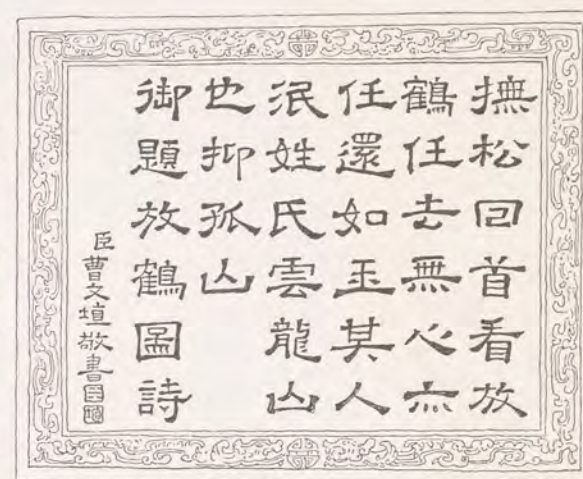 撫松回首看放
鶴任去無心亦
任還如玉其人
泯姓氏雲龍山
也抑孤山
御題放鶴圖詩
臣曹文埴敬書